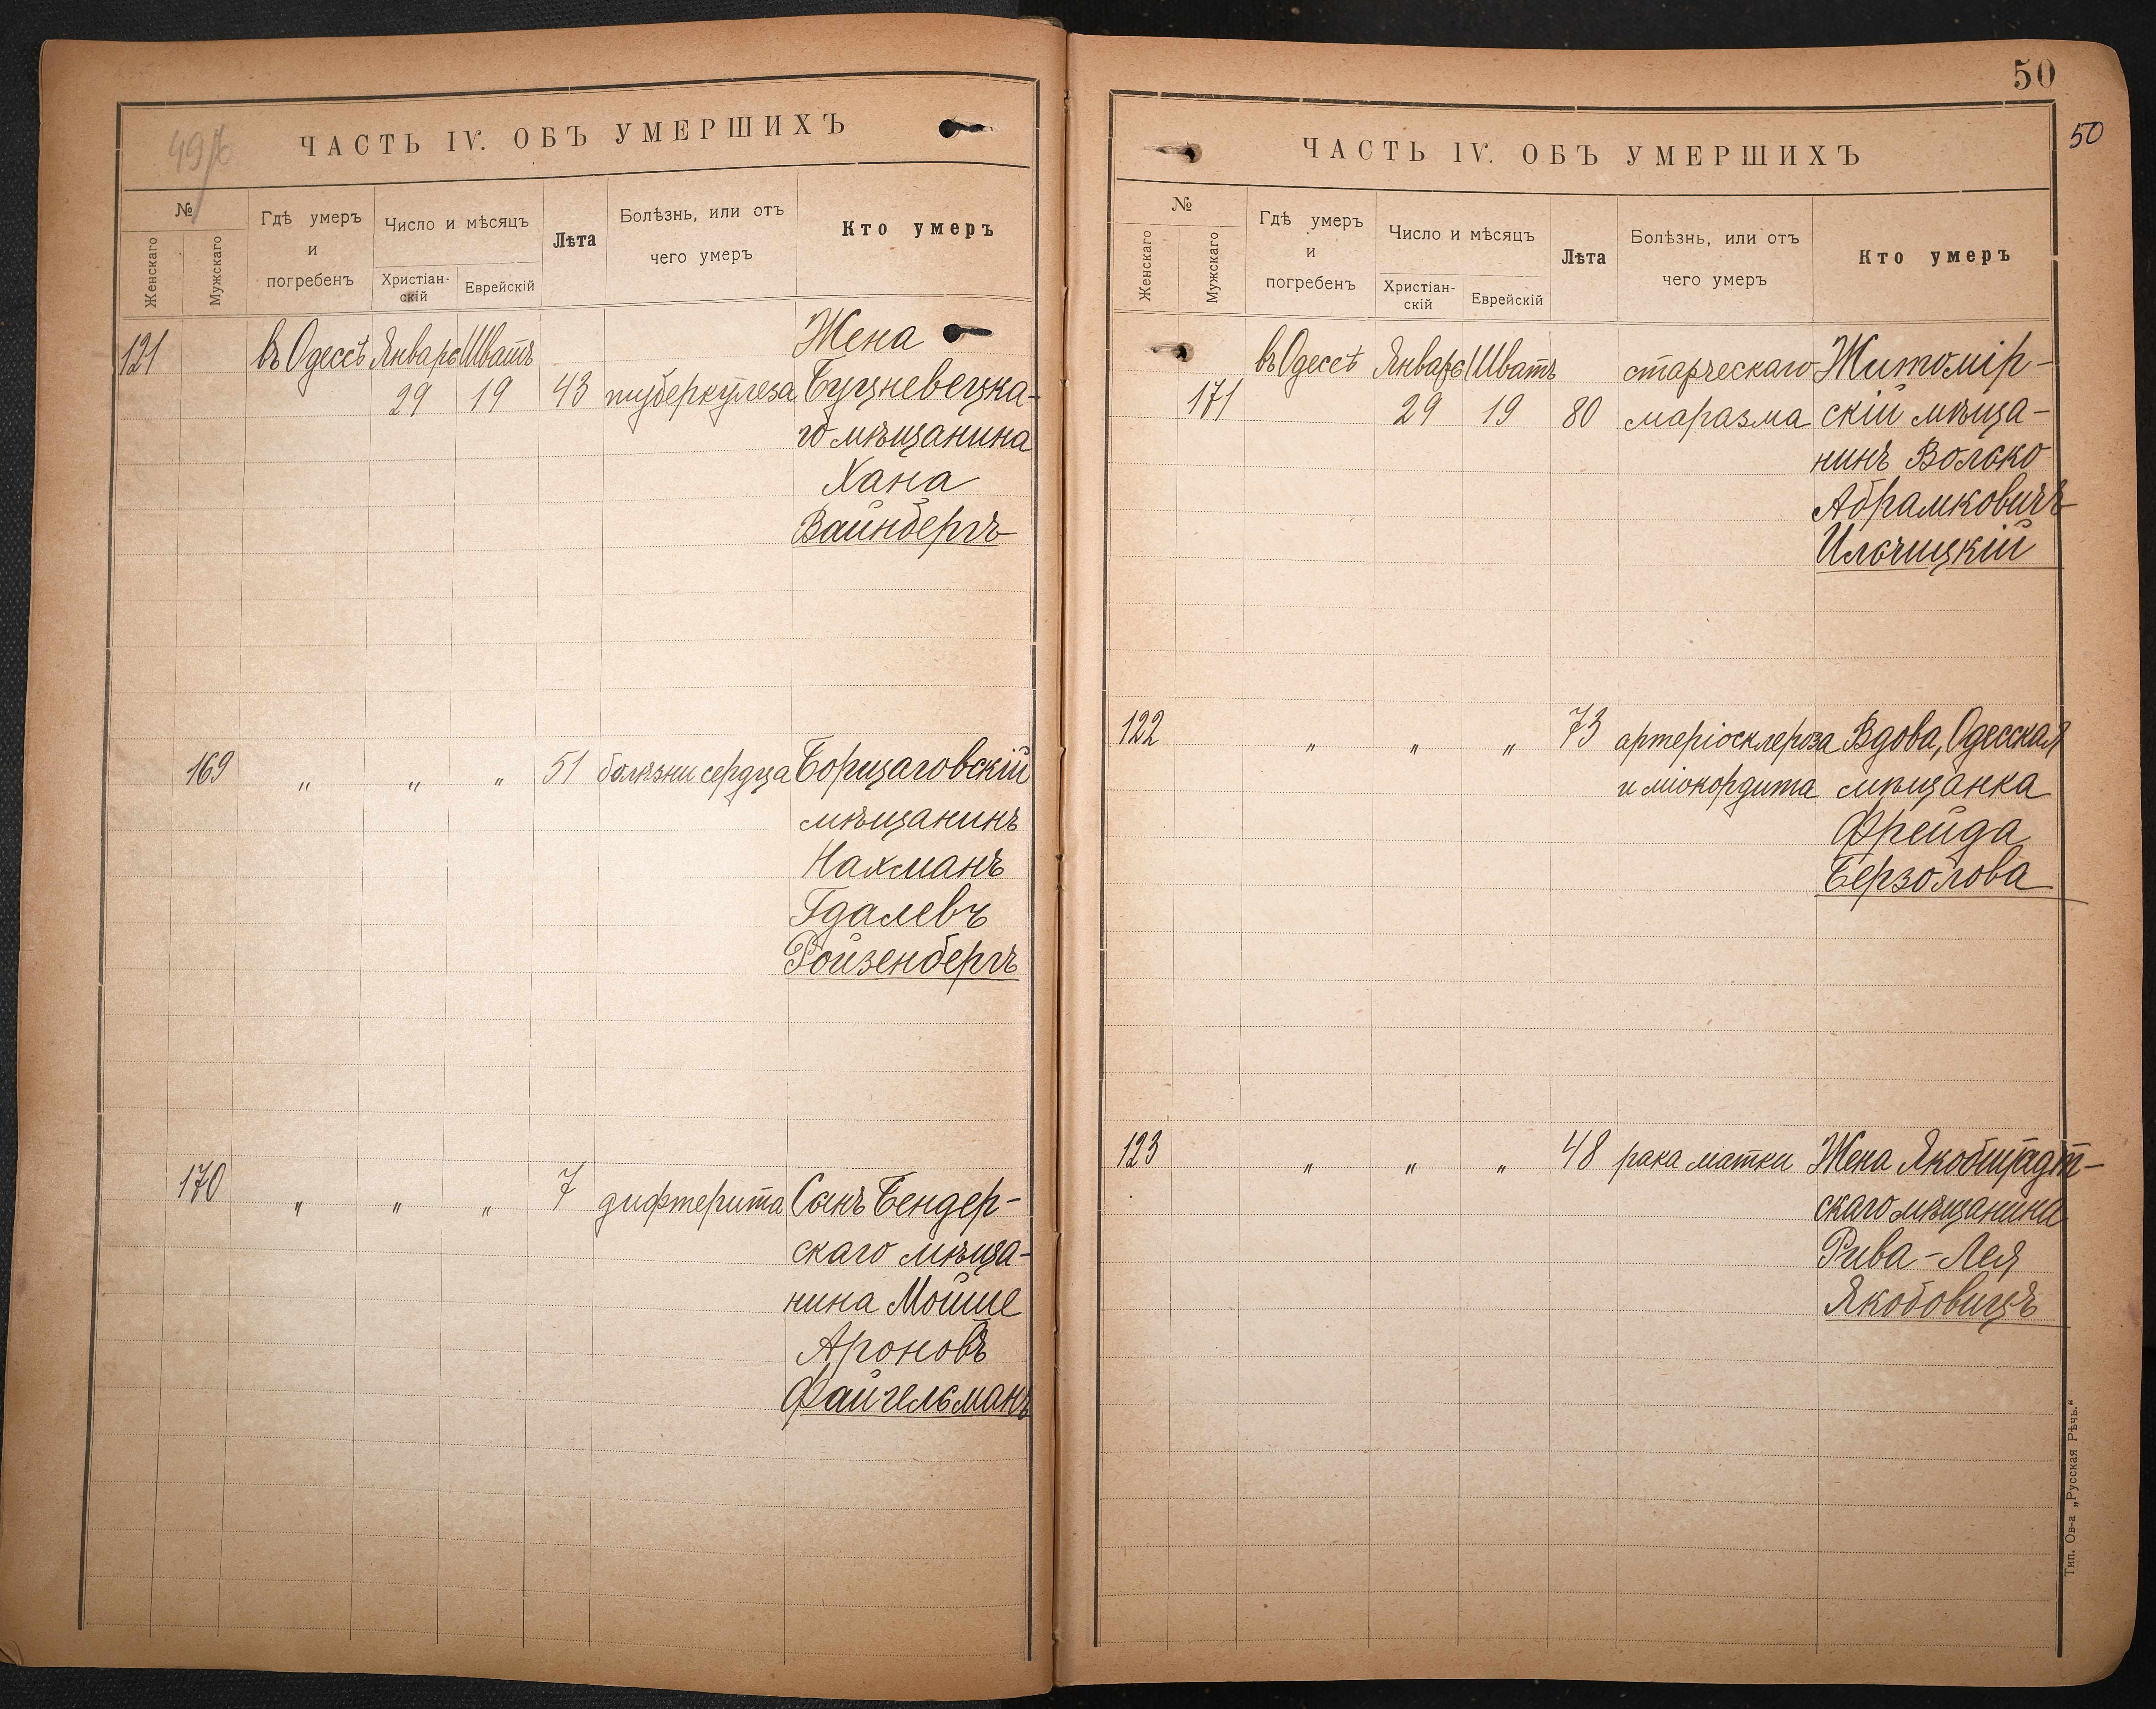 49 ƶ
ЧАСТЬ IV. ОБЪ УМЕРШИХЪ
№
Женскаго
Мужскаго
Гдѣ умеръ
и
погребенъ
Число и мѣсяцъ
Христіан-
скій
Еврейскій
Лѣта
Болѣзнь, или отъ
чего умеръ
Кто умеръ
121 въ Одессѣ Январь Шватъ Жена
29 19 43 туберкулеза Буцневецка-
го мѣщанина
Хана
Вайнбергъ
169 „ „ „ 51 болѣзни сердца Борщаговскій
мѣщанинъ
Нахманъ
Гдалевъ
Ройзенбергъ
170 „ „ „ 7 дифтерита Сынъ Бендер-
скаго мѣща-
нина Мойше
Ароновъ
Файгельманъ
50
50
ЧАСТЬ IV. ОБЪ УМЕРШИХЪ
№
Женскаго
Мужскаго
Гдѣ умеръ
и
погребенъ
Число и мѣсяцъ
Христіан-
скій
Еврейскій
Лѣта
Болѣзнь, или отъ
чего умеръ
Кто умеръ
въ Одессѣ Январь Шватъ старческаго Житомір-
171 29 19 80 маразма скій мѣща-
нинъ Волько
Абрамковичъ
Ильчицкій
122 „ „ „ 73 артеріосклероза Вдова, Одесская
и міокордита мѣщанка
Фрейда
Берзолова
123 „ „ „ 48 рака матки Жена Якобштадт-
скаго мѣщанина
Рива-Лея
Якобовицъ
Тип. Ов-а „Русская Рѣчь.“